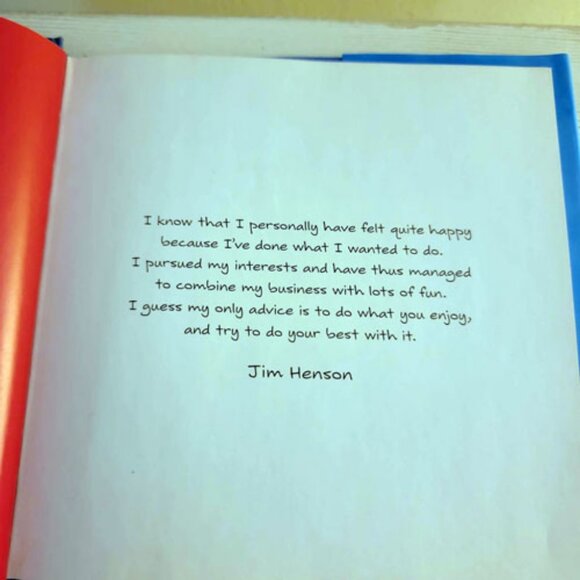 I know that I personally have felt quite happy
because I've done what I wanted to do.
I pursued my interests and have thus managed
to combine my business with lots of fun.
I guess my only advice is to do what you enjoy,
and try to do your best with it.
Jim Henson